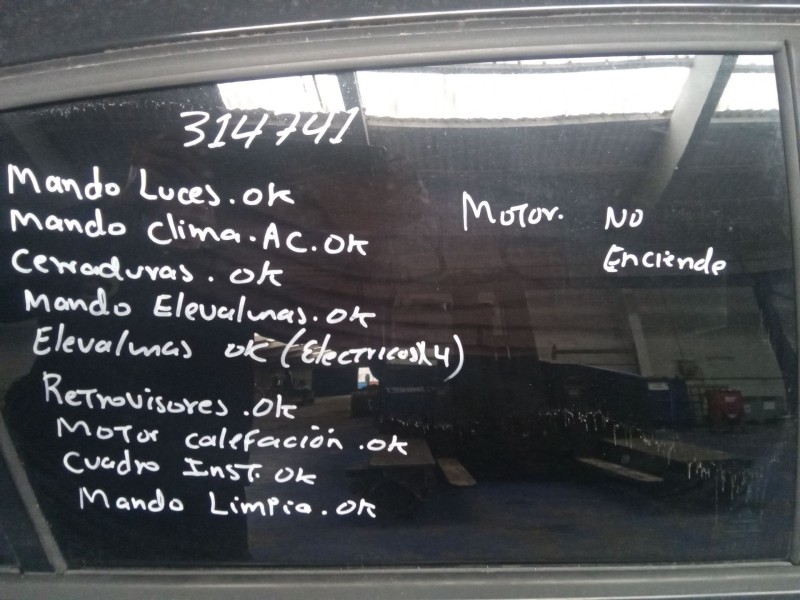 314741
Mando Luces. ok
Mando clima. AC. OK
Cerraduras. ok
Mando Elevalunas. OK
Elevalunas ok (Electricos x4)
Retrovisores. ok
Motor calefación. ok
Cuadro Inst. ok
Mando Limpia. ok
Motor. NO
Enciende